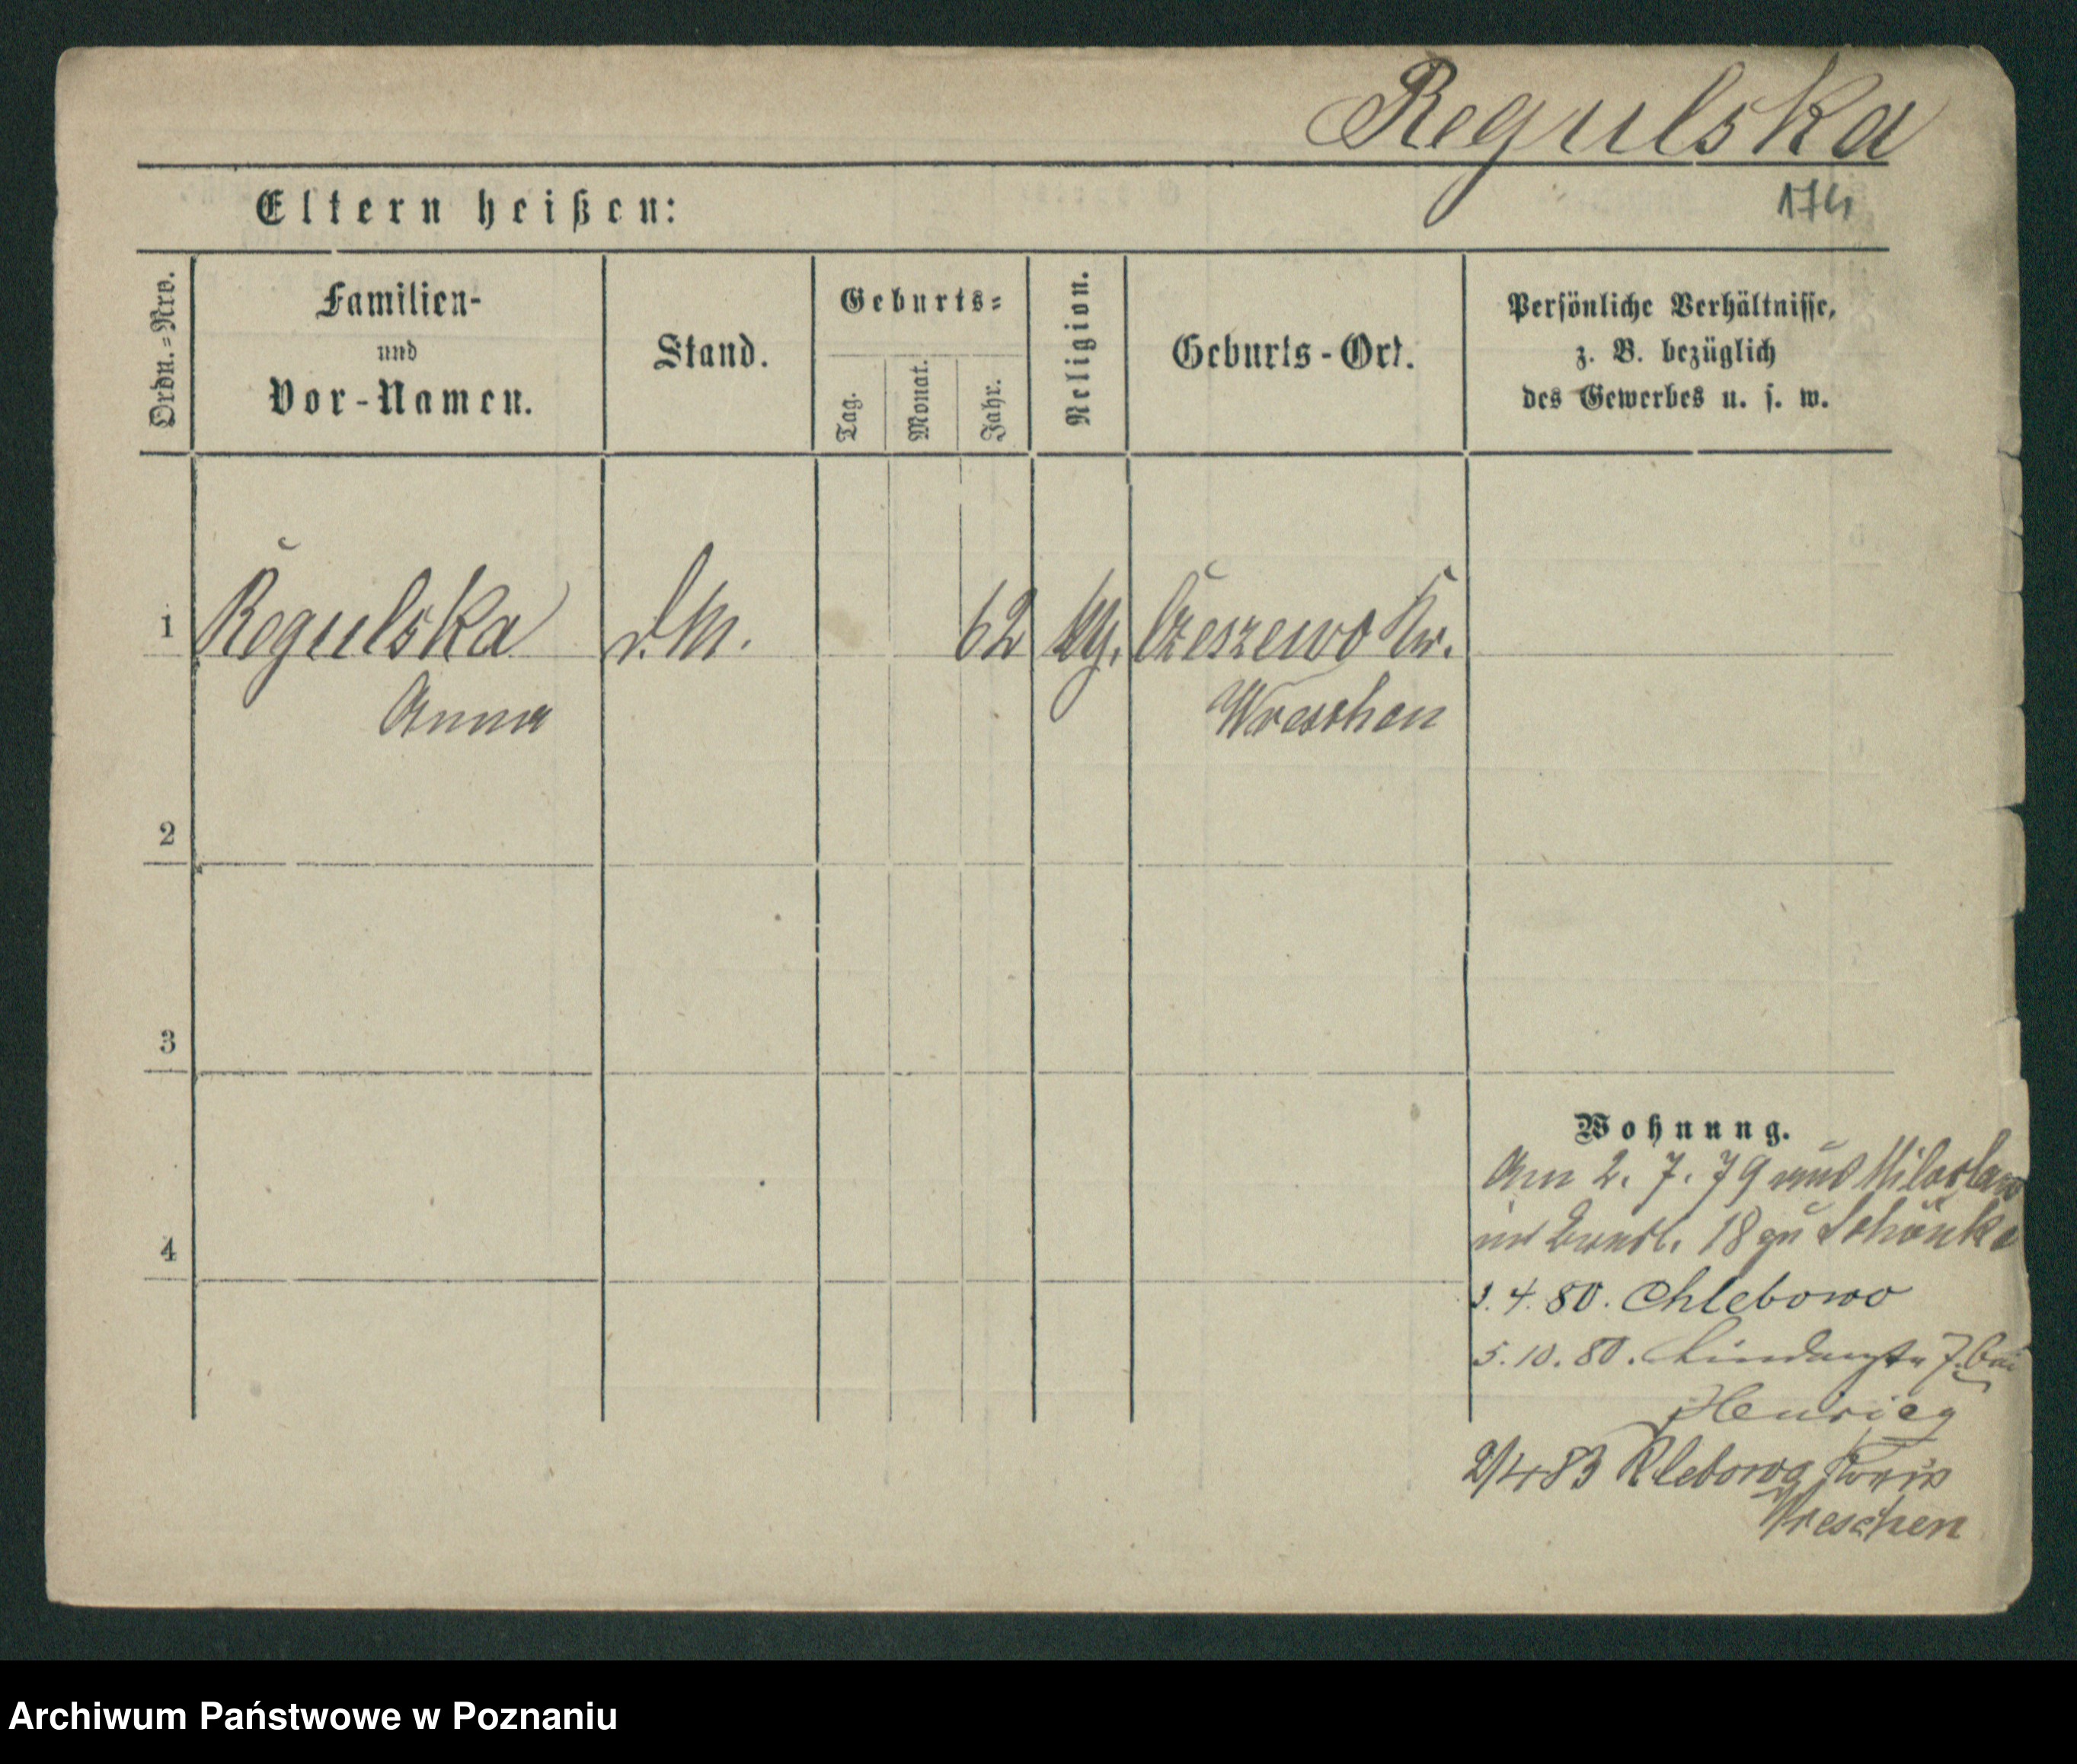 Regulska
174
Eltern heißen:
Ordn.-Nro.
Familien-
und
Vor-Namen.
Stand.
Geburts-
Tag.
Monat.
Jahr.
Religion.
Geburts-Ort.
Persönliche Verhältnisse,
z. B. bezüglich
des Gewerbes u. s. w.
1
Regulska
Anna
d. M.
62
kg.
Czeszewo Kr.
Wreschen
2
3
4
Wohnung.
Am 2. 7. 79 aus Miloslaw
18 zu Schönke
3. 4. 80. Chlebowo
5. 10. 80. 7. bei
2/4 83 Klebowo Kreis
Wreschen
Archiwum Państwowe w Poznaniu